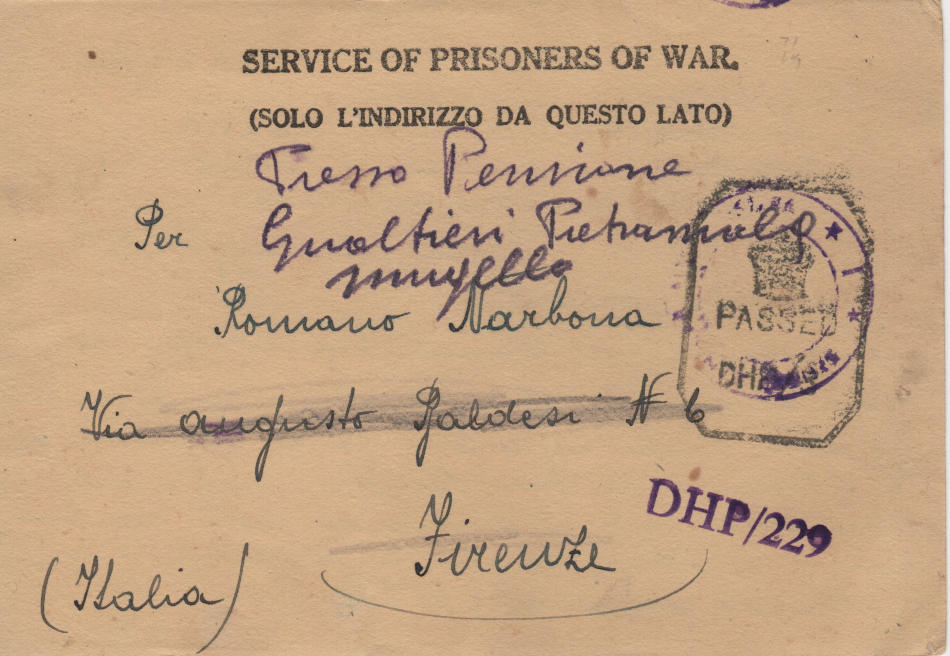 SERVICE OF PRISONERS OF WAR.
(SOLO L'INDIRIZZO DA QUESTO LATO)
Presso Pensione
Per Gualtieri Pietramala
Mugello
Romano Narbona
PASSED
DHP
Via Augusto Baldesi N 6
DHP/229
Firenze
(Italia)